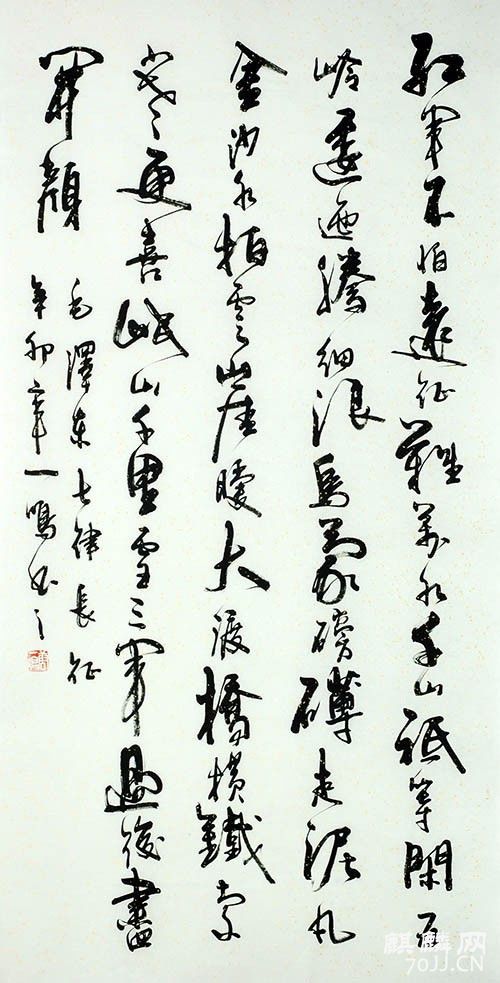 紅軍不怕遠征難萬水千山祇等閑五
岭逶迤騰細浪烏蒙磅礴走泥丸
金沙水拍雲崖暖大渡橋橫鐵索
寒更喜岷山千里雪三軍過後盡
開顏
毛澤東七律長征
辛卯章一鳴書之
麒麟网
70JJ.CN